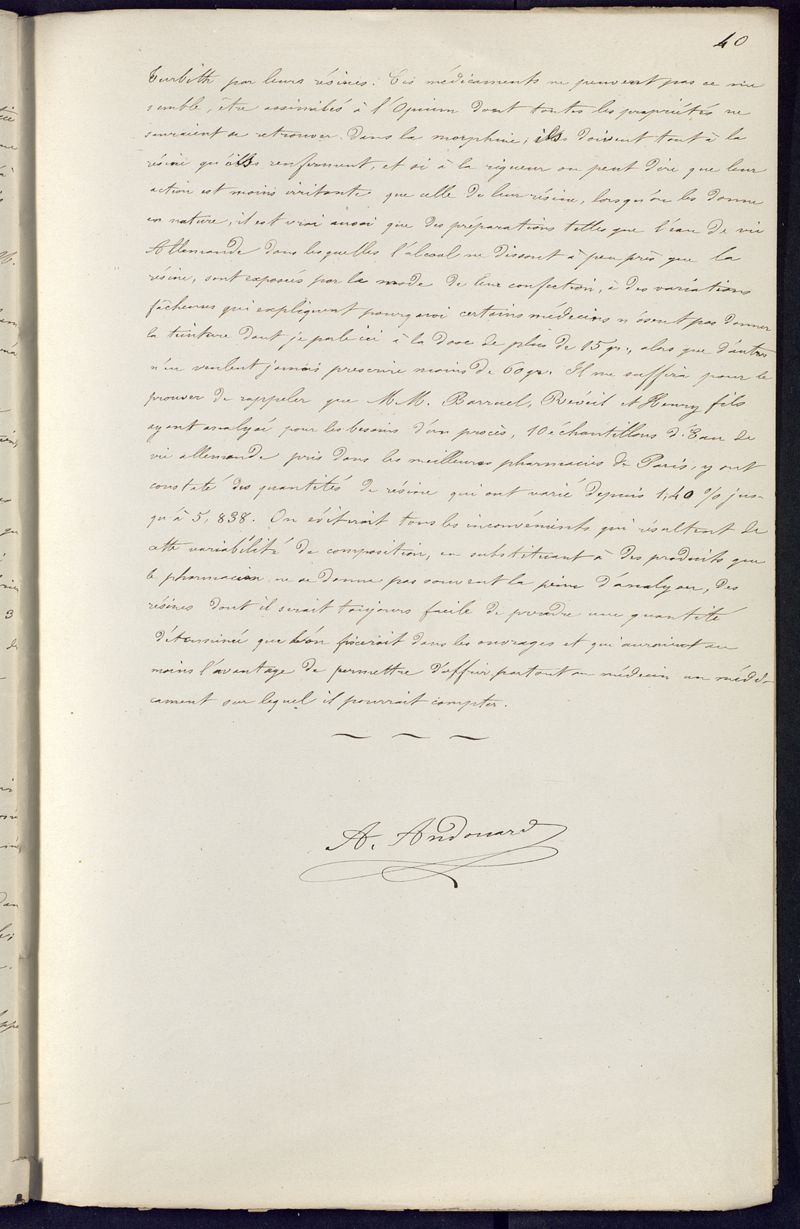 40
Turbith par leurs résines. Ces médicaments ne peuvent pas ce me
semble, être assimilés à l'Opium dont toutes les propriétés ne
sauraient se retrouver dans la morphine; ils doivent tout à la
résine qu'ils renferment, et si à la rigueur on peut dire que leur
action est moins irritante que celle de leur résine, lorsqu'on les donne
en nature, il est vrai aussi que des préparations telles que l'eau de vie
Allemande dans lesquelles l'alcool ne dissout à peu près que la
résine, sont exposées par le mode de leur confection, à des variations
fâcheuses qui expliquent pourquoi certains médecins n'osent pas donner
la teinture dont je parle ici à la dose de plus de 15 gr., alors que d'autres
n'en veulent jamais prescrire moins de 60 gr. Il me suffira pour le
prouver de rappeler que M.M. Barruel, Réveil et Henry fils
ayant analysé pour les besoins d'un procès, 10 échantillons d'Eau de
vie allemande pris dans les meilleures pharmacies de Paris, y ont
constaté des quantités de résine qui ont varié depuis 1,40 % jus-
qu'à 5,838. On éviterait tous les inconvénients qui résultent de
cette variabilité de composition, en substituant à des produits que
le pharmacien ne se donne pas souvent la peine d'analyser, des
résines dont il serait toujours facile de prendre une quantité
déterminée que l'on fixerait dans les ouvrages et qui auraient au
moins l'avantage de permettre d'offrir partout au médecin un médi-
cament sur lequel il pourrait compter.
A. Andouard